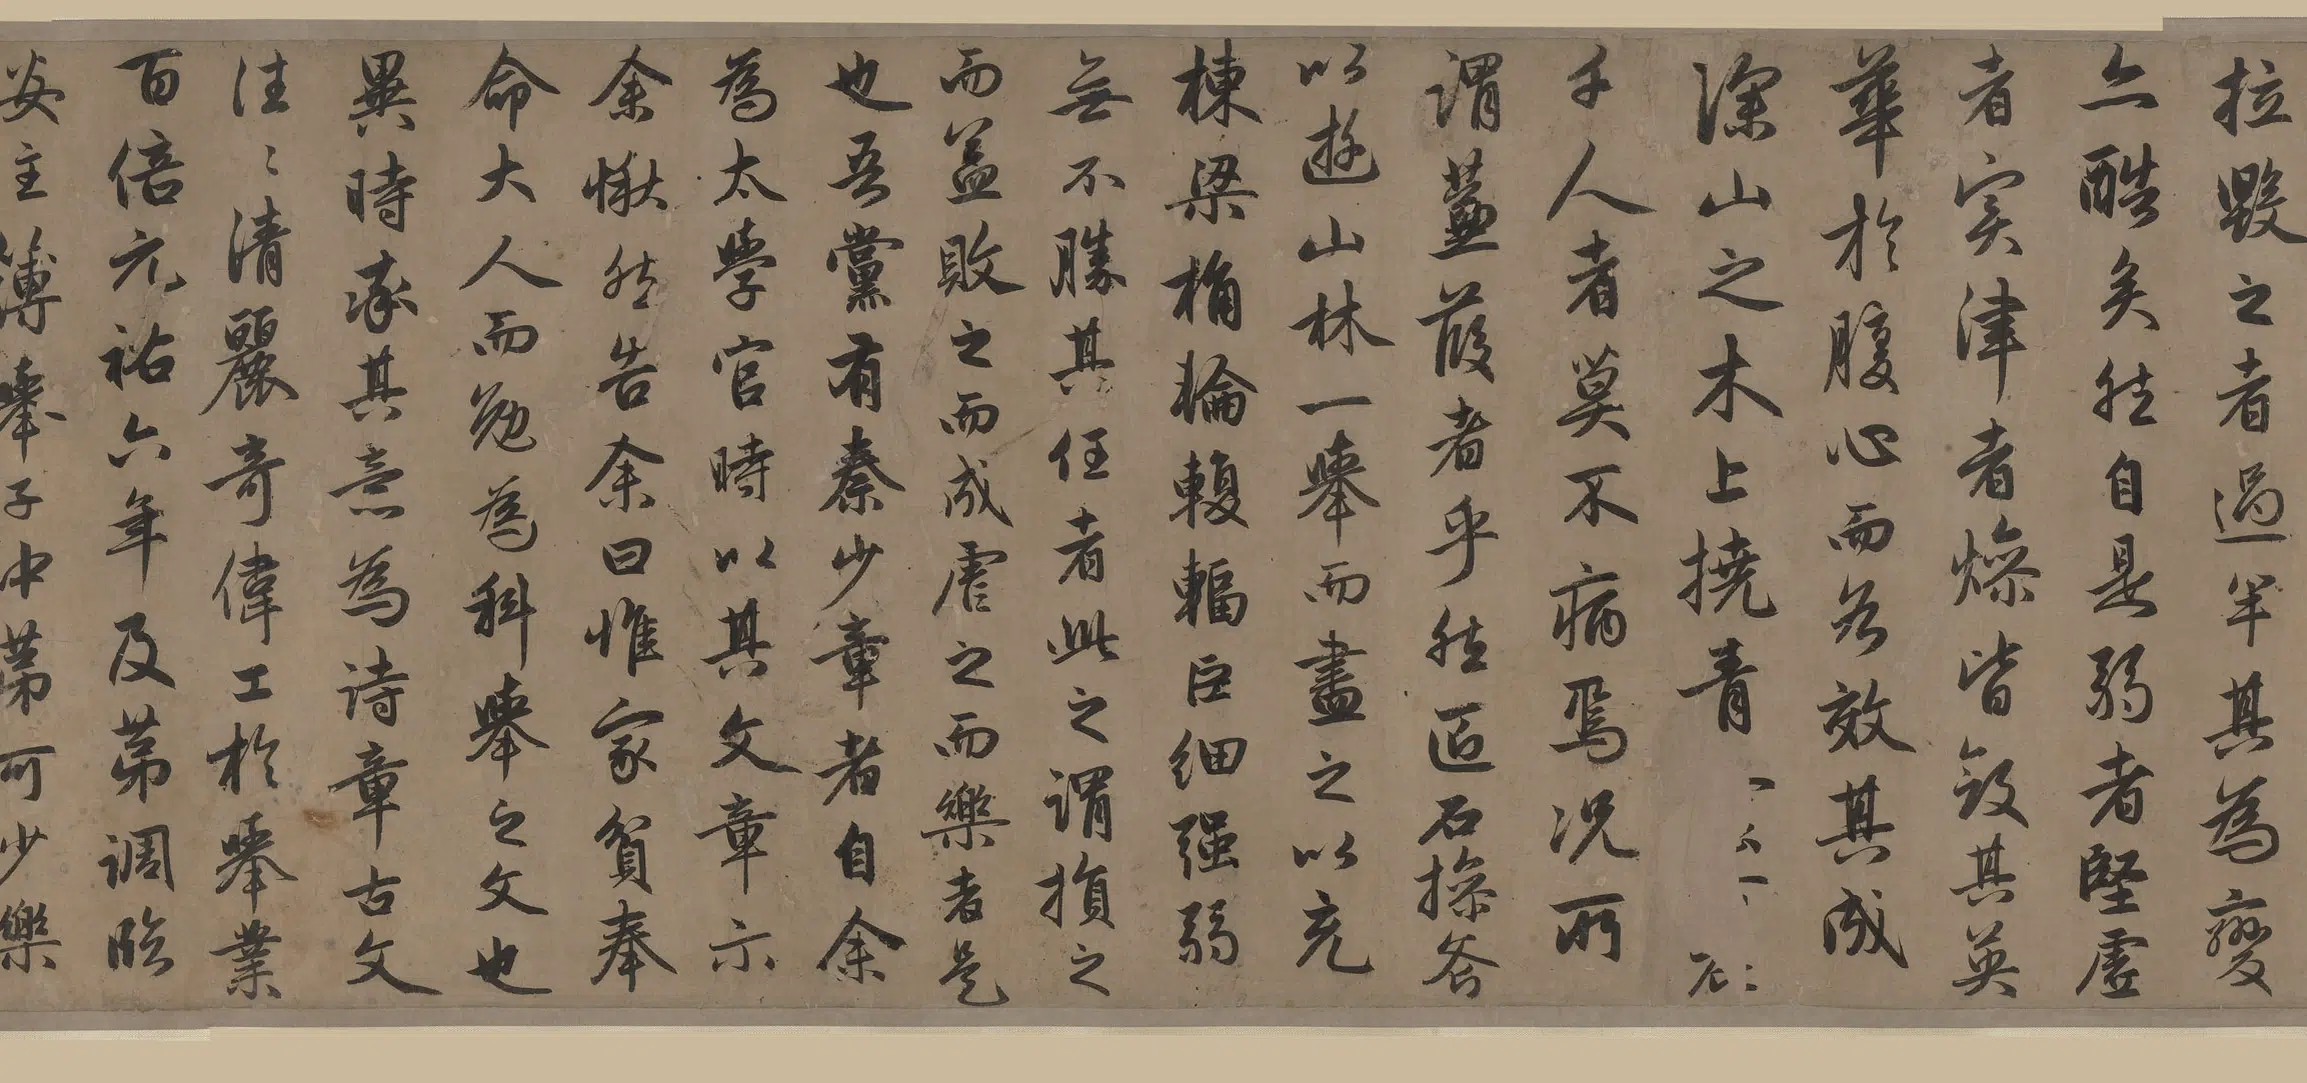 拉毀之者過半其為變
亦酷矣然自是弱者堅虛
者實津者燥皆斂其英
華於腹心而各效其成
深山之木上撓青
千人者莫不病焉況所
謂蒹葭者乎然匠石操斧
以遊山林一舉而盡之以充
棟梁桷輪輹輻巨細强弱
無不勝其任者此之謂損之
而益敗之而成虐之而樂者是
也吾黨有秦少章者自余
為太學官時以其文章示
余愀然告余曰惟家貧奉
命大人而勉為科舉之文也
異時率其意為詩章古文
往〻清麗奇偉工於舉業
百倍元祐六年及第調臨
安主簿舉子中第可少樂